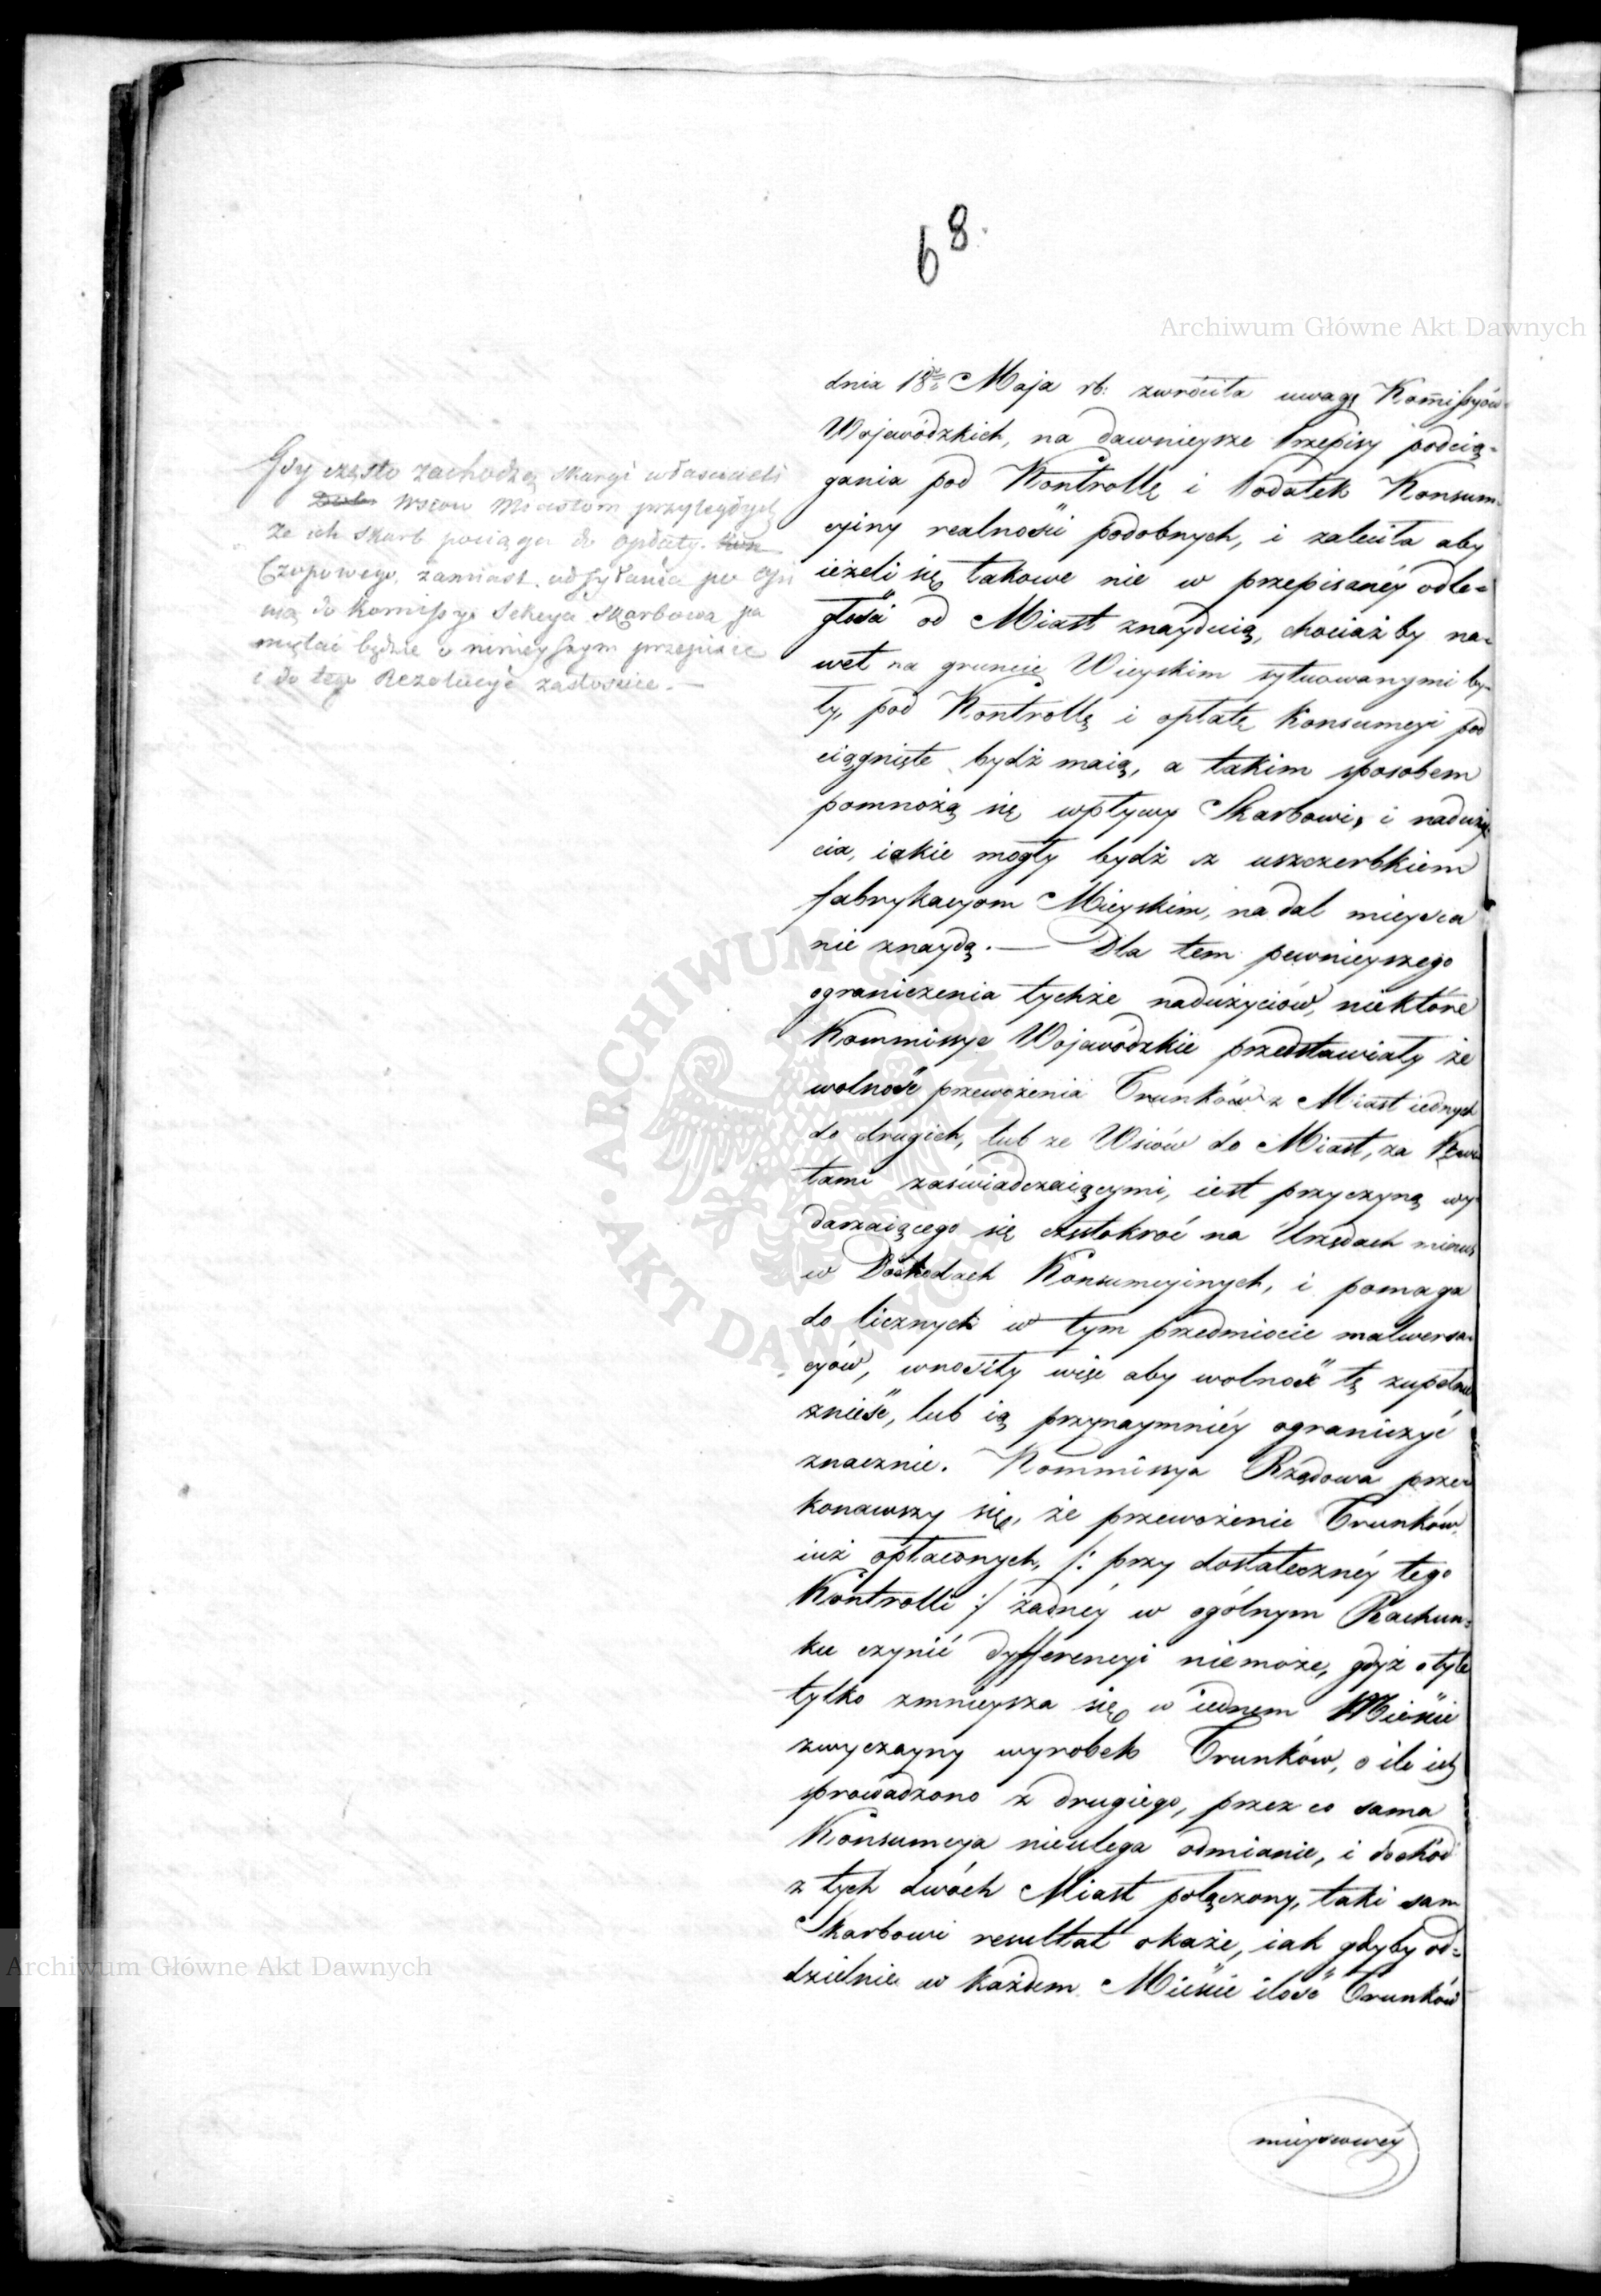 68.
Archiwum Główne Akt Dawnych
dnia 18go Maja rb. zwróciła uwagę Kommissyów
Wojewódzkich, na dawnieysze Przepisy podcią=
gania pod Kontrollę i Podatek Konsum=
cyiny realności podobnych, i zaleciła aby
ieżeli się takowe nie w przepisanéy odle=
głości od Miast znayduią, chociaż by na=
wet na gruncie Wieyskim sytuowanymi by=
ły, pod Kontrollę i opłatę Konsumcyi pod
ciągnięte bydź maią, a takim sposobem
pomnożą się wpływy Skarbowi, i naduży
cia, iakie mogły bydź z uszczerbkiem
fabrykacyom Mieyskim, nadal mieysca
nie znaydą. — Dla tem pewnieyszego
ograniczenia tychże nadużyciów, niektóre
Kommissye Wojewódzkie przedstawiały że
wolność przewożenia Trunków z Miast iednych
do drugich, lub ze Wsiów do Miast, za Kwi
tami zaświadczaiącymi, iest przyczyną wy
darzaiącego się częstokroć na Urzędach minus
w Dochodach Konsumcyinych, i pomaga
do licznych w tym przedmiocie malwersa=
cyów, wnosiły więc aby wolność tę zupełnie
znieść, lub ią przynaymniéy ograniczyć
znacznie. Kommissya Rządowa prze=
konawszy się, że przewożenie Trunków
iuż opłaconych, /: przy dostatecznéy tego
Kontrolli :/ żadnéy w ogólnym Rachun=
ku czynić dyfferencyi niemoże, gdyż o tyle
tylko zmnieysza się w iednem Mieście
zwyczayny wyrobek Trunków, o ile ich
sprowadzono z drugiego, przez co sama
Konsumcya nieulega odmianie, i dochód
z tych dwóch Miast połączony, taki sam
Skarbowi resultat okaże, iak gdyby od=
dzielnie w każdem Mieście ilość Trunków
mieyscowéy
Gdy często zachodzą skargi właścicieli
Wsiow Miastom przyległych
że ich Skarb pociąga do opłaty
Czopowego, zamiast odsyłania po
do Kommissyi Sekcya Skarbowa pa
miętać będzie o ninieyszym przepisie
i do tego Rezolucye zastosuie. —
ARCHIWUM GŁÓWNE AKT DAWNYCH
Archiwum Główne Akt Dawnych